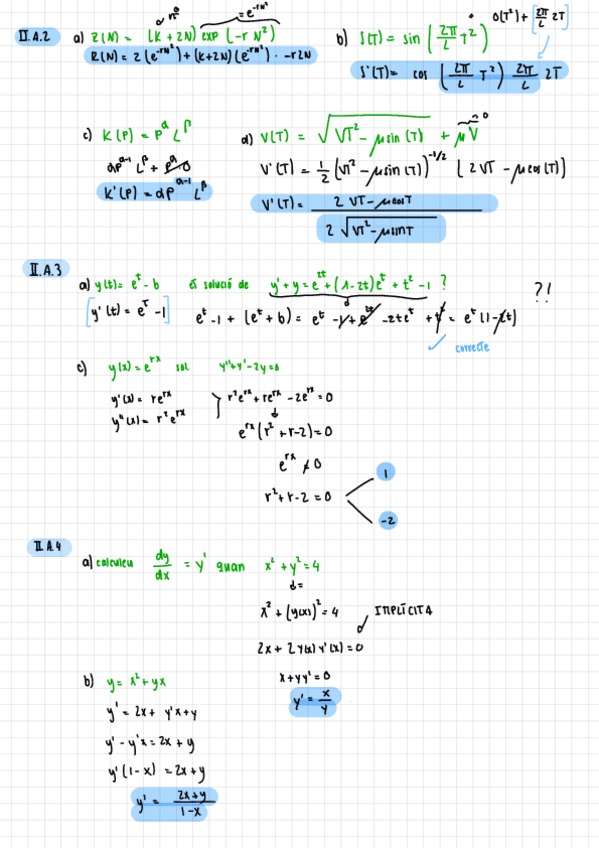 II.A.2 a) R(N) = (K + 2N) exp (-r N²)
= e^-rN²
R(N) = 2 (e^-rN²) + (K+2N) (e^-rN²) · -r2N
b) S(T) = sin (2π/L T²)
0(T²) + [2π/L 2T]
S'(T) = cos (2π/L T²) 2π/L 2T
c) K(P) = P^α L^β
αP^α-1 L^β + P^α 0
K'(P) = αP^α-1 L^β
d) V(T) = √(VT² - μ sin (T)) + μV
0
V'(T) = 1/2 (VT² - μ sin (T))^-1/2 (2VT - μ cos (T))
V'(T) = (2VT - μ cosT) / (2 √(VT² - μ sinT))
II.A.3
a) y(t) = e^t - b És solució de y' + y = e^2t + (1-2t)e^t + t² - 1 ?
?!
[y'(t) = e^t - 1] e^t - 1 + (e^t + b) = e^t - 1 + e^2t - 2te^t + t² = e^t (1 - 2t)
✓ correcte
c) y(x) = e^rx sol y'' + y' - 2y = 0
y'(x) = re^rx
y''(x) = r²e^rx
r²e^rx + re^rx - 2e^rx = 0
e^rx (r² + r - 2) = 0
e^rx ≠ 0
r² + r - 2 = 0
1
-2
II.A.4
a) calculeu dy/dx = y' quan x² + y² = 4
x² + (y(x))² = 4
IMPLÍCITA
2x + 2y(x) y'(x) = 0
x + yy' = 0
y' = x/y
b) y = x² + yx
y' = 2x + y'x + y
y' - y'x = 2x + y
y' (1 - x) = 2x + y
y' = (2x + y)/(1 - x)